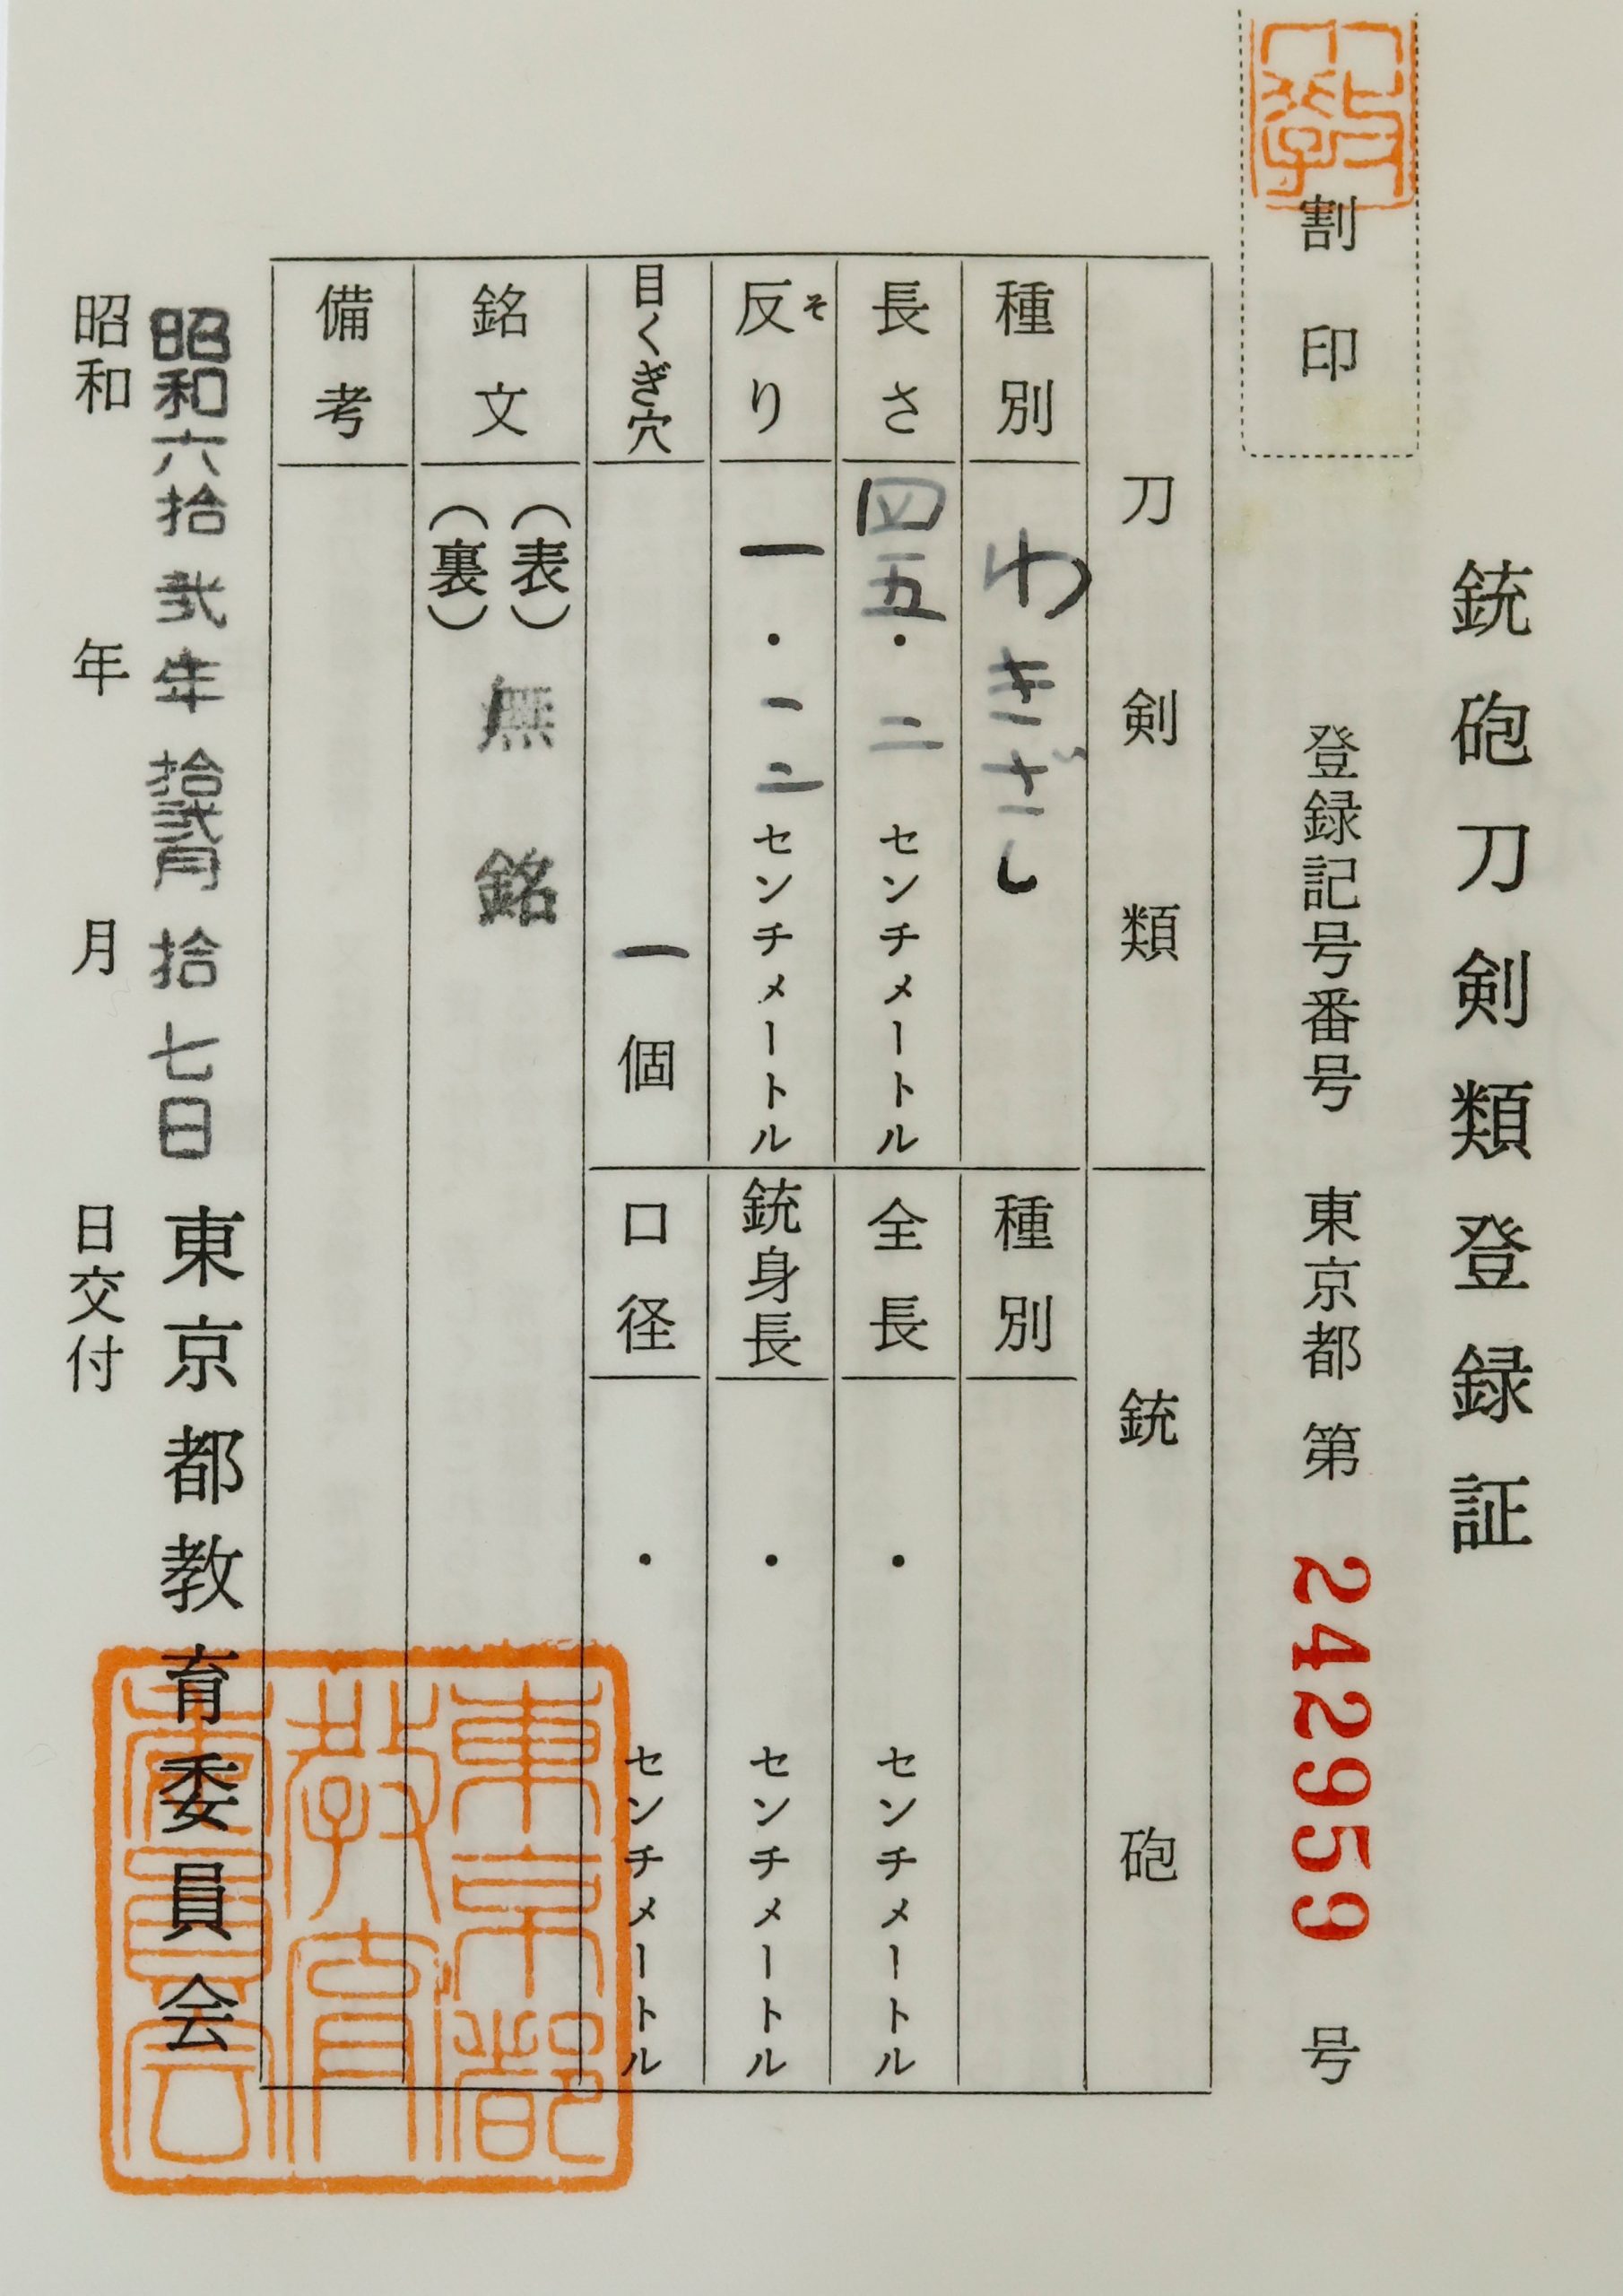 銃砲刀剣類登録証
割印
登録記号番号 東京都 第 242959 号
刀剣類
銃砲
種別 わきざし
種別
長さ 四五・二 センチメートル
全長 ・ センチメートル
反り 一・一二 センチメートル
そ
銃身長 ・ センチメートル
目くぎ穴 一個
口径 ・ センチメートル
銘文 (表)
(裏)
無銘
備考
昭和六拾弐年拾弐月拾七日
東京都教育委員会
昭和 年 月 日交付
東京都
教育
委員会